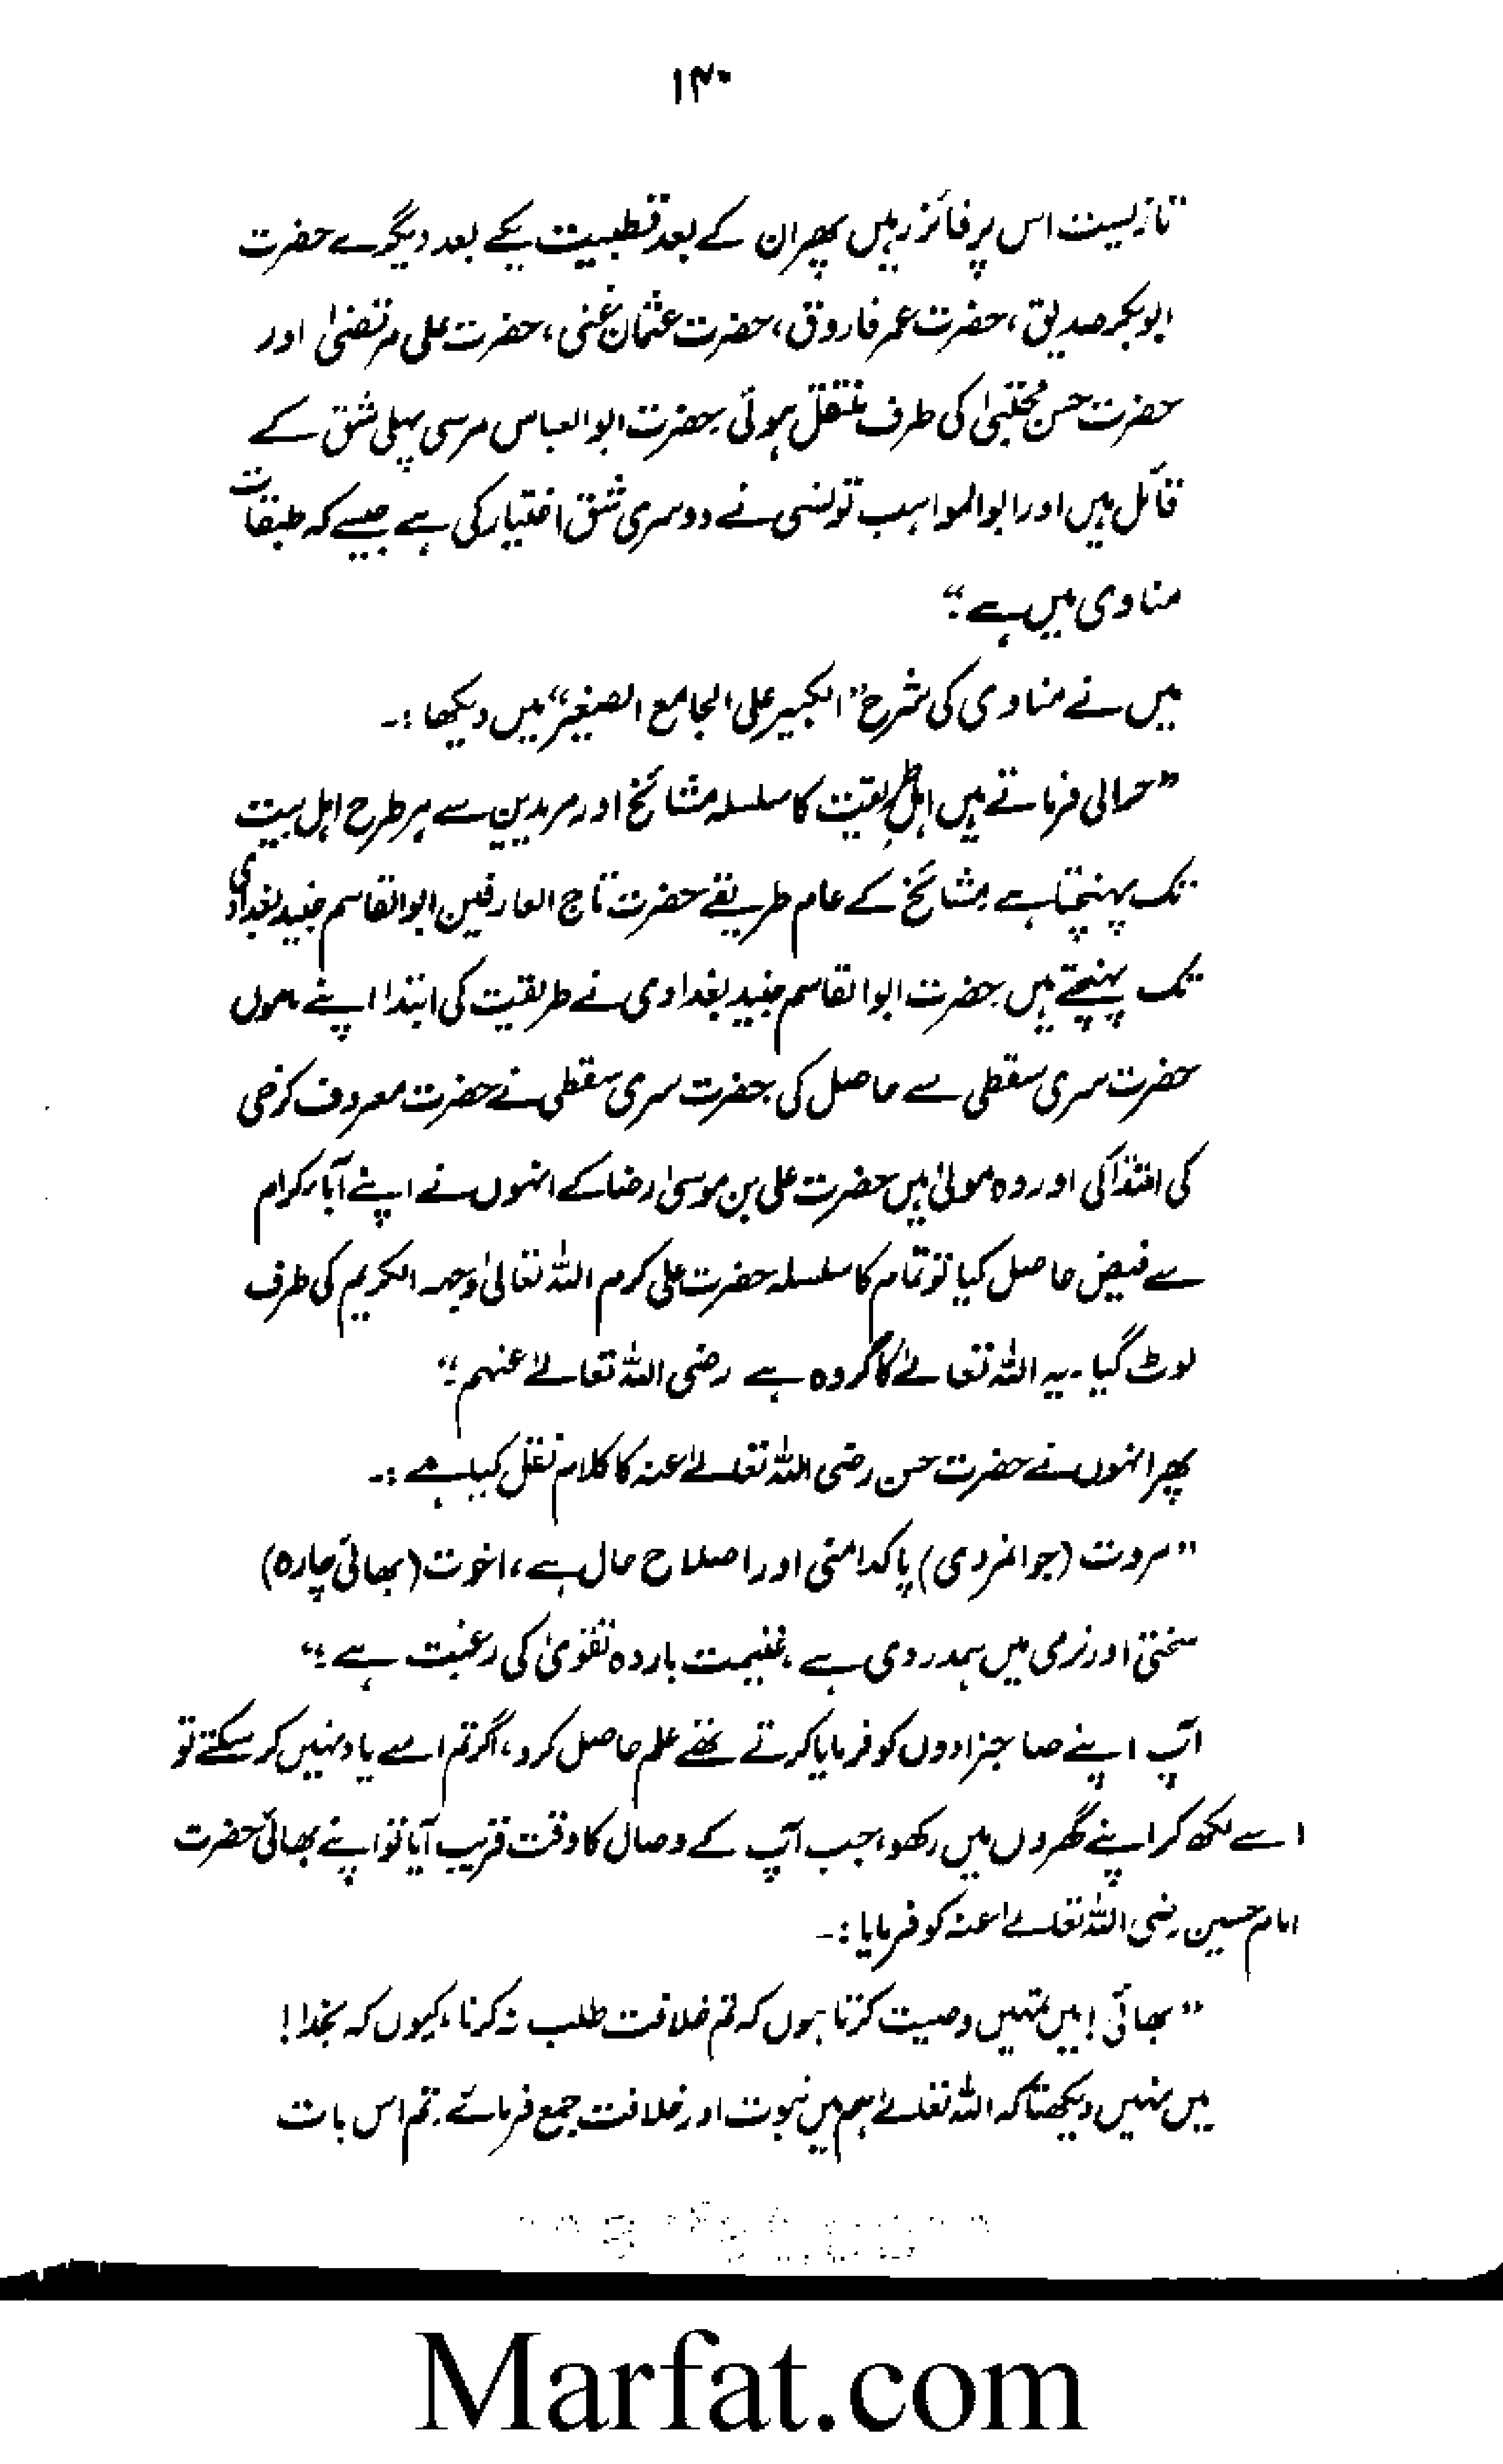 ۱۴۰
تازیست اس پر فائز رہیں پھر ان کے بعد قطبیت یکے بعد دیگرے حضرت
ابوبکر صدیق، حضرت عمر فاروق، حضرت عثمان غنی، حضرت علی مرتضیٰ اور
حضرت حسن مجتبیٰ کی طرف منتقل ہوئی۔ حضرت ابو العباس مرسی پہلی شق کے
قائل ہیں اور ابو المواہب تونسی نے دوسری شق اختیار کی ہے جیسے کہ طبقات
مناوی میں ہے۔“
میں نے مناوی کی شرح ”الکبیر علی الجامع الصغیر“ میں دیکھا :۔
”حرالی فرماتے ہیں اہل طریقت کا سلسلہ مشائخ اور مریدین سے ہر طرح اہل بیت
تک پہنچتا ہے مشائخ کے عام طریقے حضرت تاج العارفین ابو القاسم جنید بغدادی
تک پہنچتے ہیں حضرت ابو القاسم جنید بغدادی نے طریقت کی ابتدا اپنے ماموں
حضرت سری سقطی سے حاصل کی حضرت سری سقطی نے حضرت معروف کرخی
کی اقتدا کی اور وہ مولیٰ ہیں حضرت علی بن موسیٰ رضا کے انہوں نے اپنے آباء کرام
سے فیض حاصل کیا تو تمام کا سلسلہ حضرت علی کرم اللہ تعالیٰ وجہہ الکریم کی طرف
لوٹ گیا۔ یہ اللہ تعالےٰ کا گروہ ہے رضی اللہ تعالےٰ عنہم“
پھر انہوں نے حضرت حسن رضی اللہ تعالےٰ عنہ کا کلام نقل کیا ہے :۔
”مروت (جوانمردی) پاکدامنی اور اصلاح حال ہے، اخوت (بھائی چارہ)
سختی اور نرمی میں ہمدردی ہے، غنیمت باردہ تقویٰ کی رغبت ہے“
آپ اپنے صاحبزادوں کو فرمایا کرتے تھے علم حاصل کرو، اگر تم اسے یاد نہیں کر سکتے تو
اسے لکھ کر اپنے گھروں میں رکھو، جب آپ کے وصال کا وقت قریب آیا تو اپنے بھائی حضرت
امام حسین رضی اللہ تعالےٰ عنہ کو فرمایا :۔
”بھائی! میں تمہیں وصیت کرتا ہوں کہ تم خلافت طلب نہ کرنا، کیوں کہ بخدا!
میں نہیں دیکھتا کہ اللہ تعالےٰ ہم میں نبوت اور خلافت جمع فرمائے۔ تم اس بات
Marfat.com